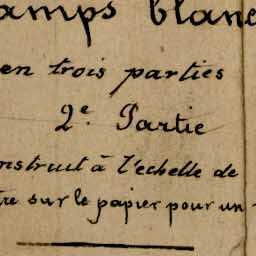 amps blanc
en trois parties
2e. Partie
nstruit à l'echelle de
tre sur le papier pour un